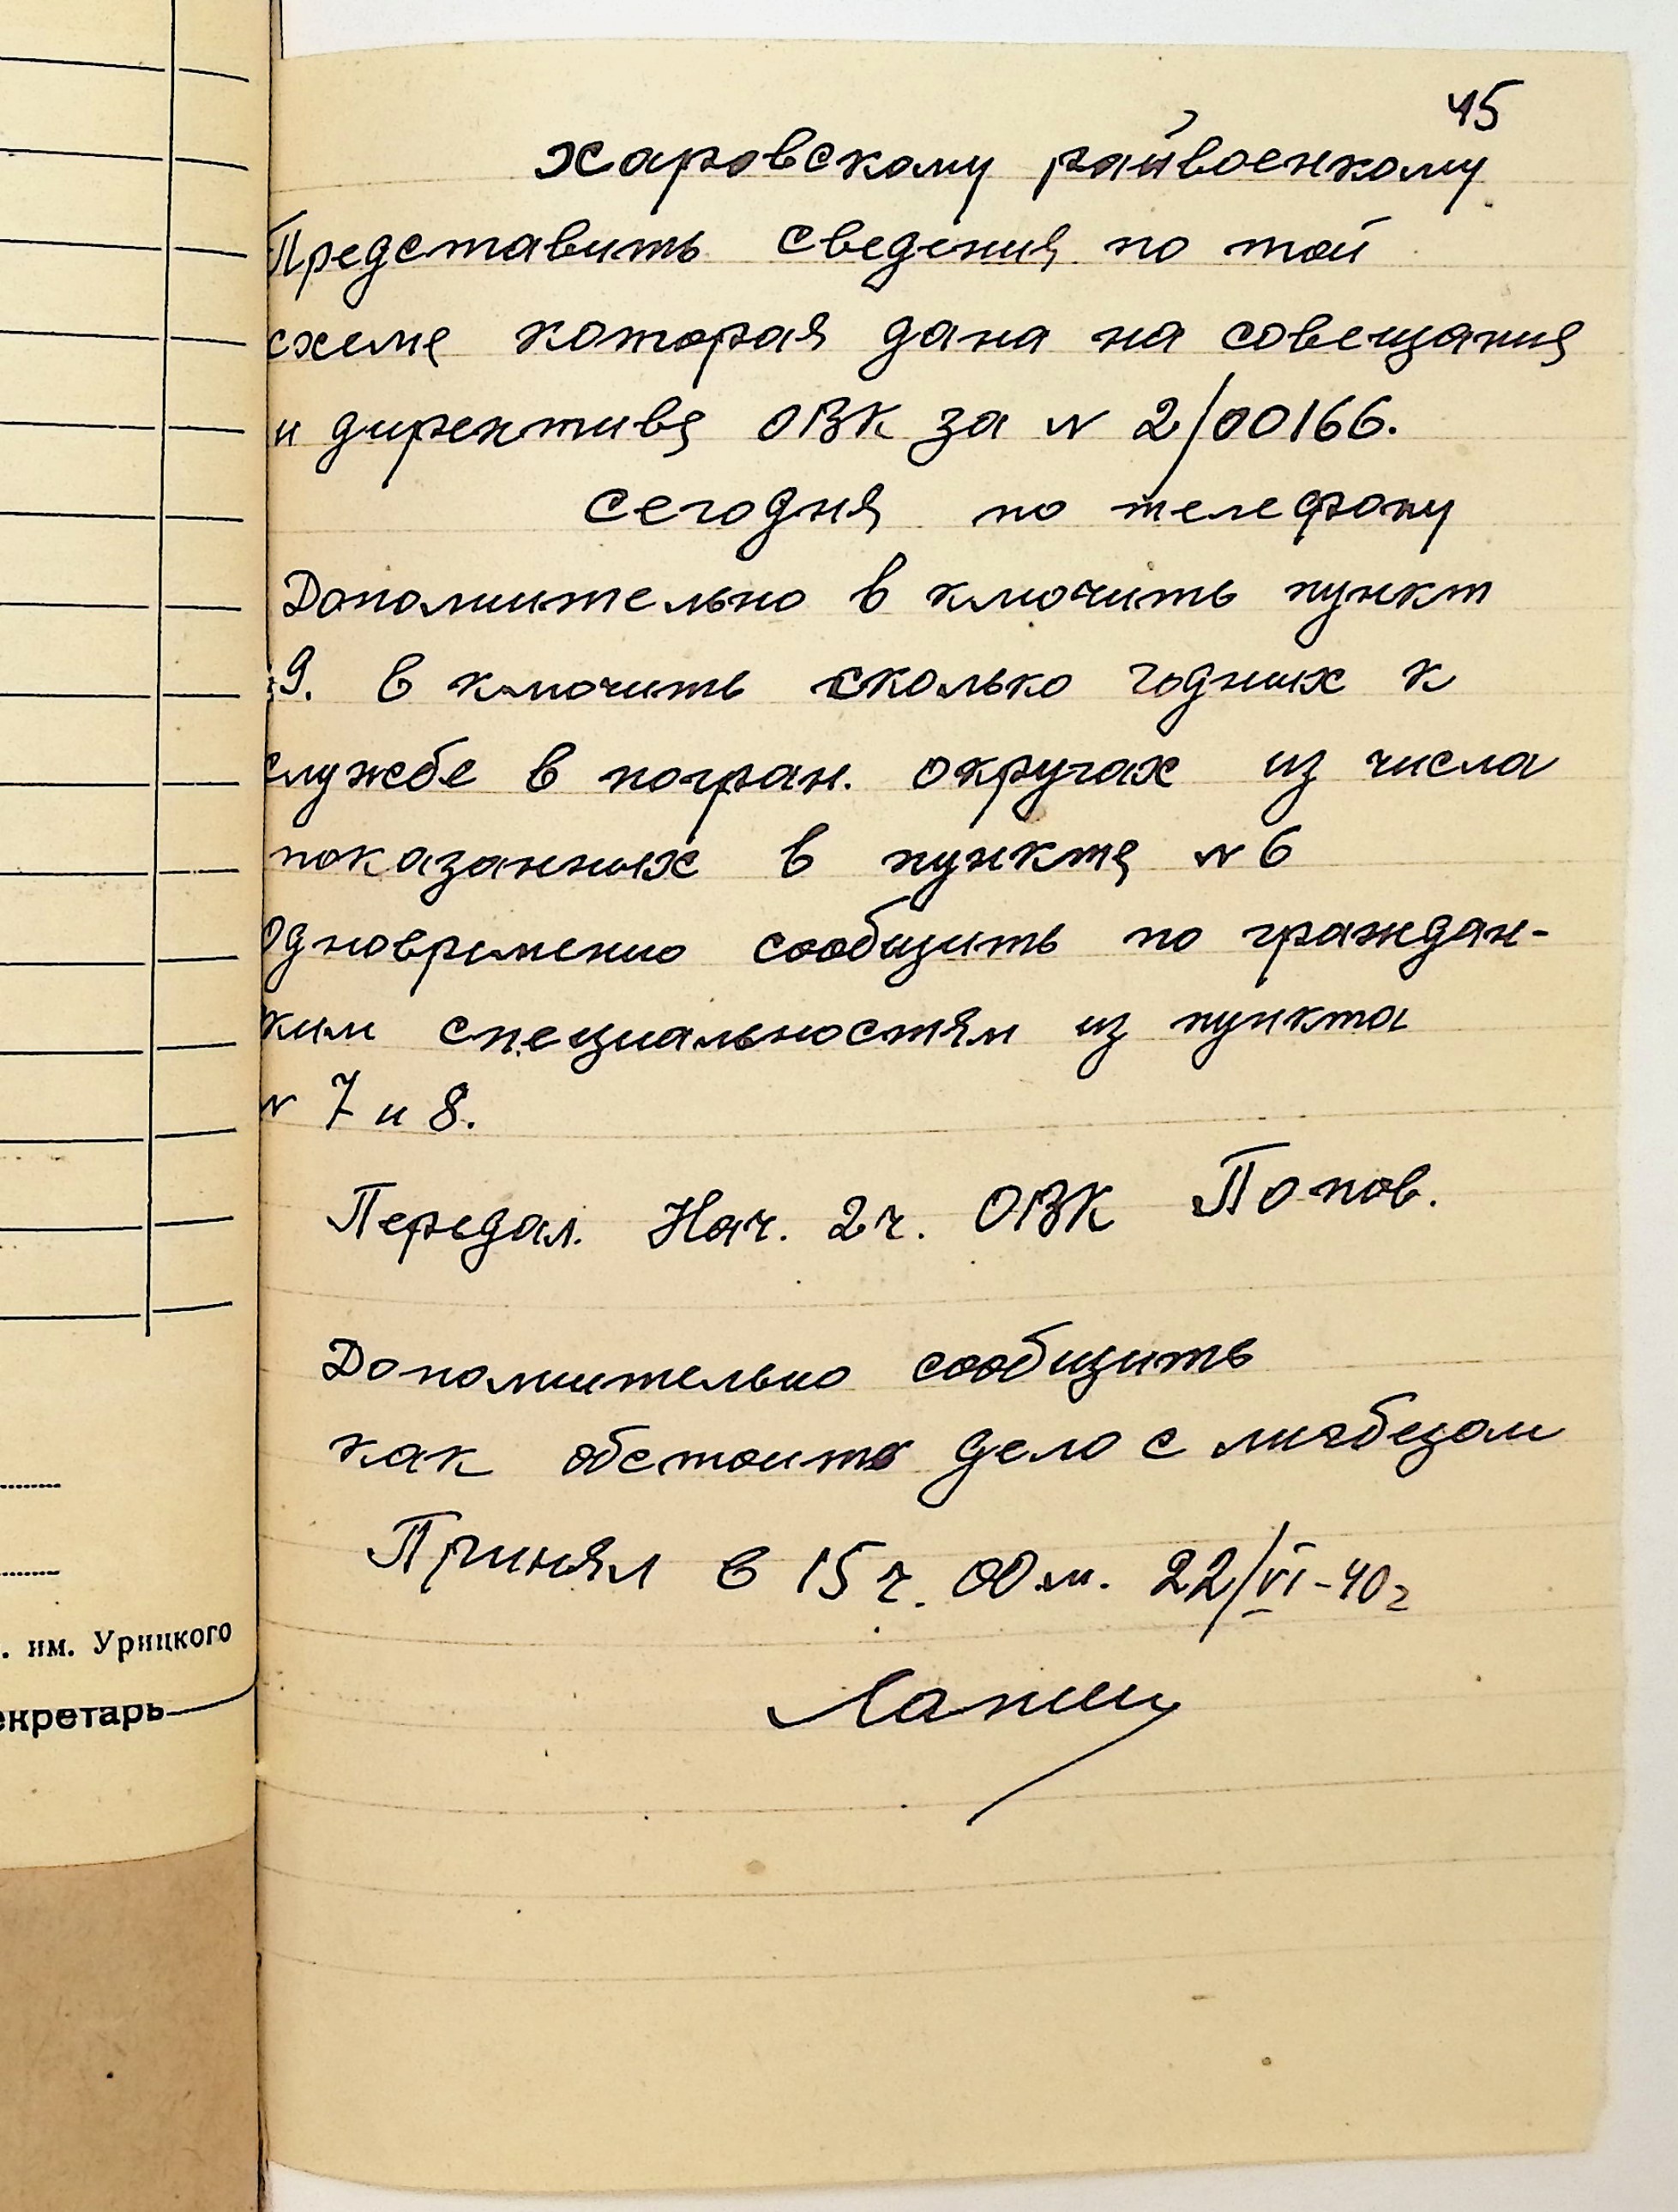 45
Харовскому райвоенкому
Представить сведения по той
схеме которая дана на совещания
и директиве ОВК за N 2/00166.
Сегодня по телефону
Дополнительно в ключить пункт
9. в ключить сколько годных к
службе в погран. округах из числа
показанных в пункте N 6
Одновременно сообщить по граждан-
ким специальностям из пункта
N 7 и 8.
Передал. Нач. 2 ч. ОВК Попов.
Дополнительно сообщить
как обстоить дело с ликбезом
Принял в 15 ч. 00 м. 22/VI-40г
Лапин
. им. Урицкого
екретарь